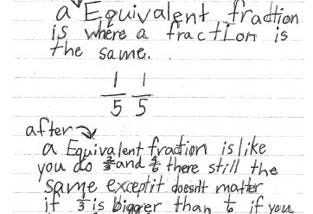 a Equivalent fradtion
is where a fraction is
the same.
1 1
5 5
after
a Equivalent fration is like
you do 2/3 and 4/6 there still the
same exceptit doesnt matter
if 2/3 is bigger than if you